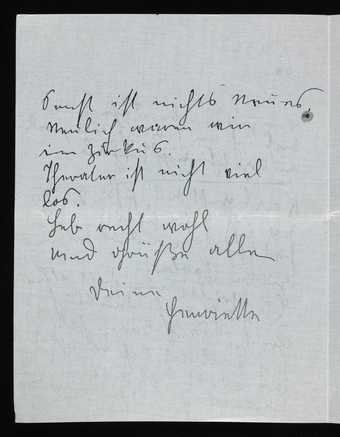 Sonst ist nichts Neues,
Neulich waren wir
im Zirkus.
Theater ist nicht viel
los.
Leb recht wohl
und Grüße alle
Deine
Henriette